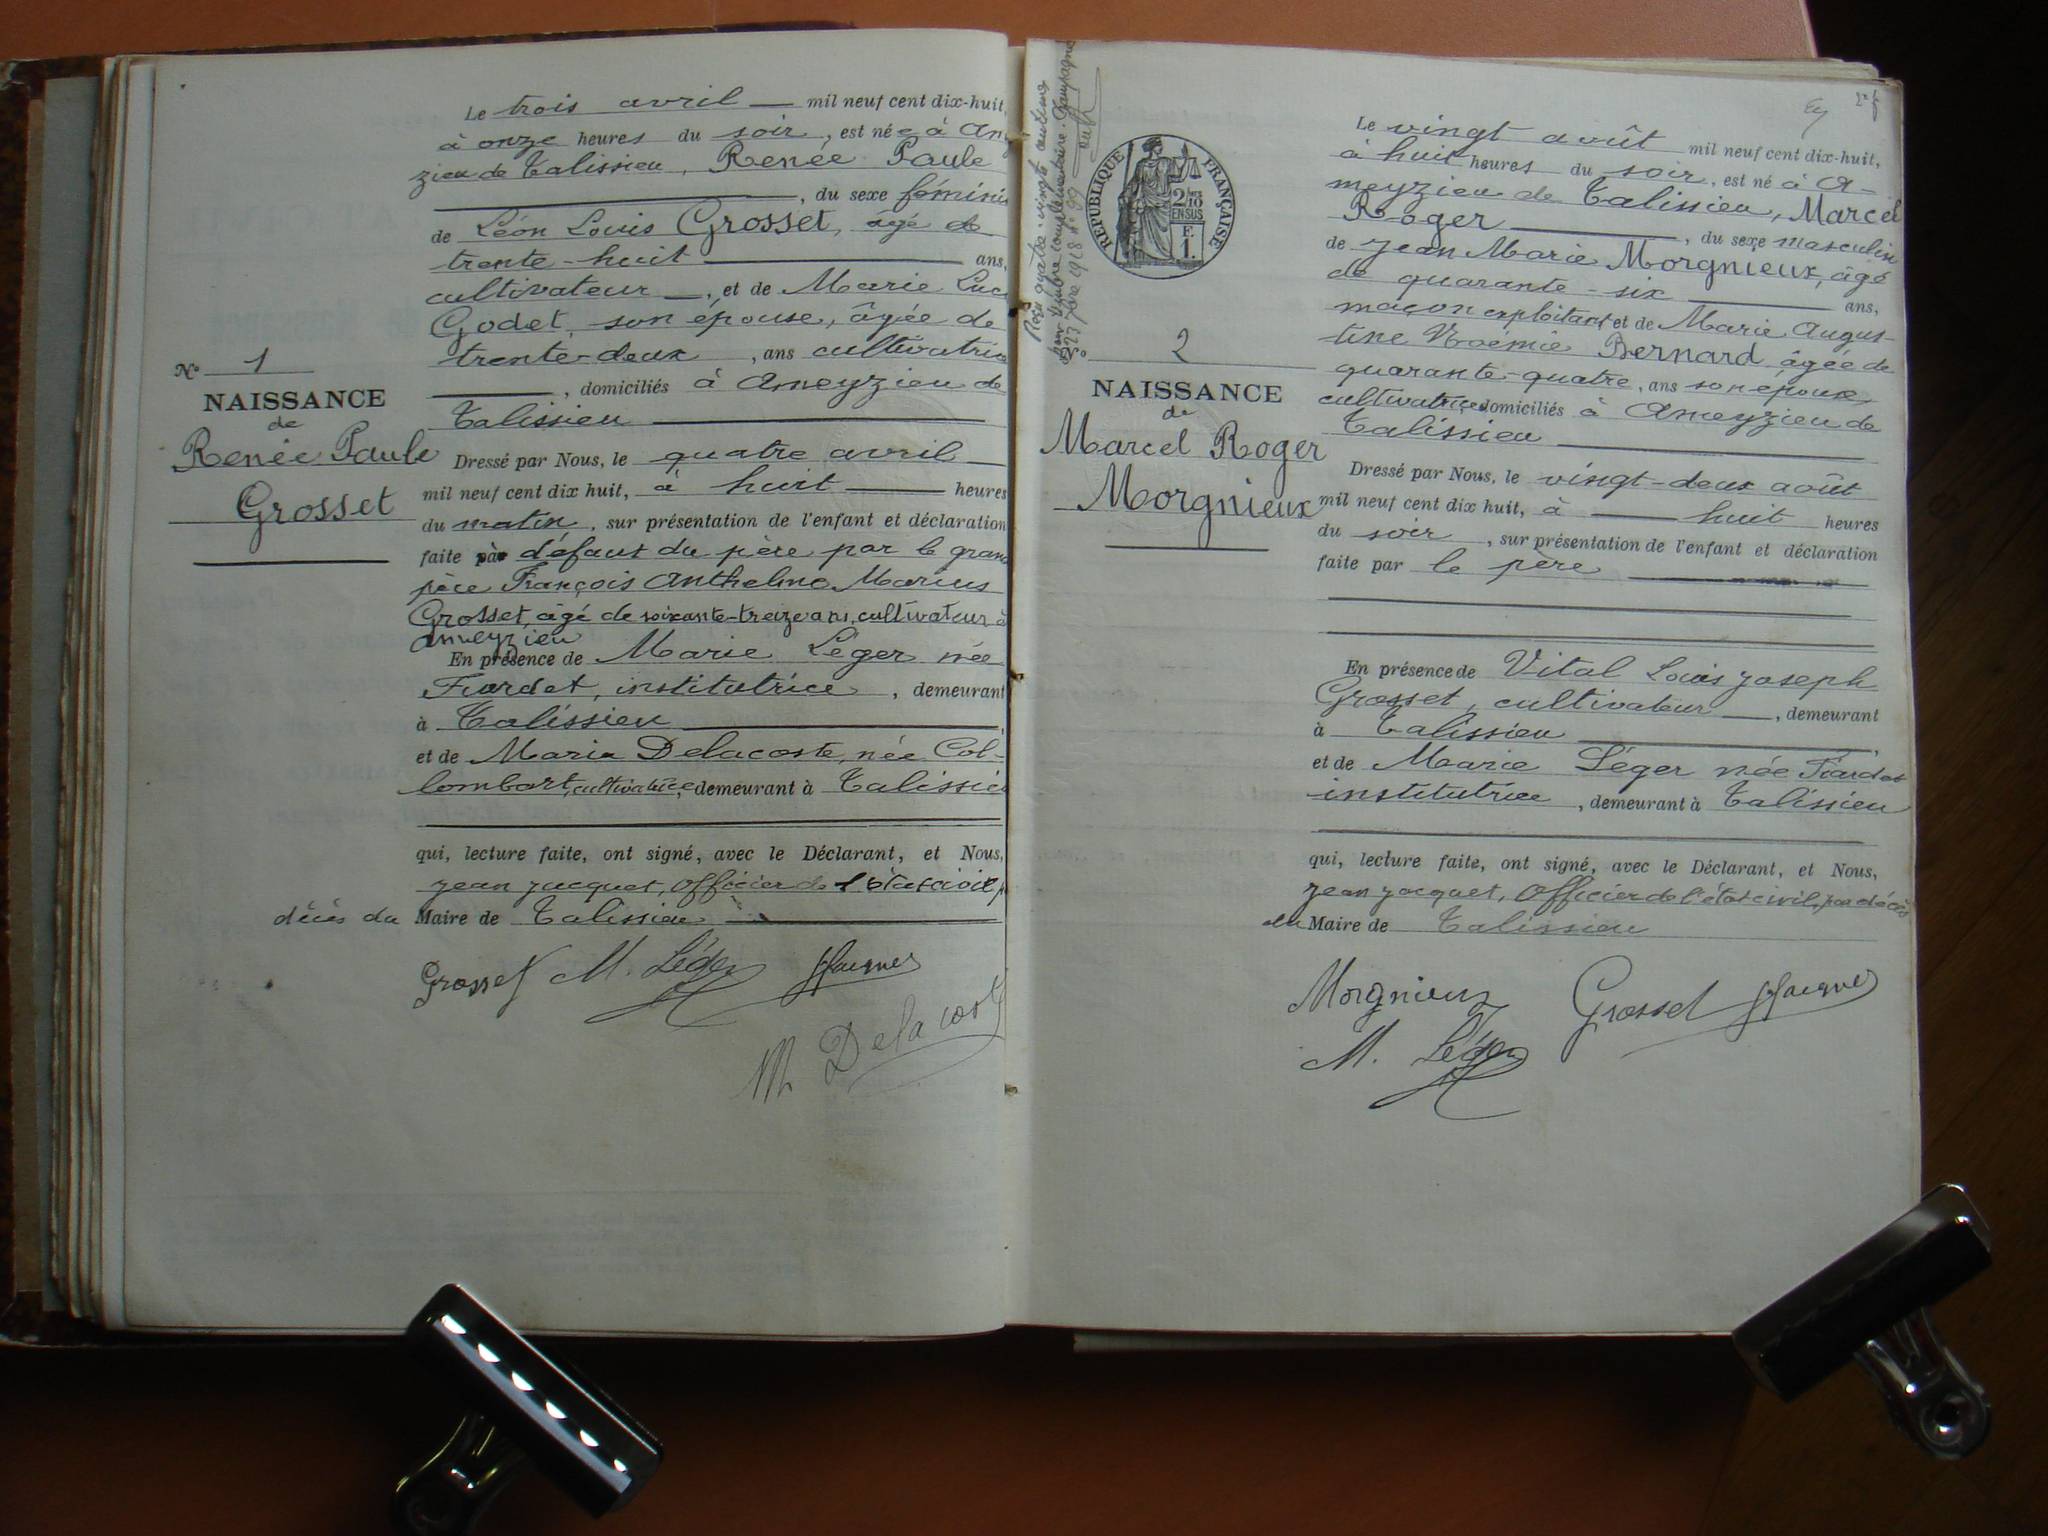 Le trois avril — mil neuf cent dix-huit,
à onze heures du soir, est née à Amey
zieu de Talissieu, Renée Paule
, du sexe féminin
de Léon Louis Grosset, âgé de
trente-huit ans,
cultivateur, et de Marie Luc
Godet, son épouse, âgée de
trente-deux, ans cultivatrice
, domiciliés à Ameyzieu de
Talissieu
Nº 1
NAISSANCE
de
Renée Paule
Grosset
Dressé par Nous, le quatre avril
mil neuf cent dix huit, à huit heures
du matin, sur présentation de l'enfant et déclaration
faite par défaut du père par le grand
père François Anthelme Marius
Grosset, âgé de soixante-treize ans, cultivateur à
Ameyzieu
En présence de Marie Léger née
Fiardet, institutrice, demeurant
à Talissieu,
et de Maria Delacoste, née Col-
lombert, cultivatrice, demeurant à Talissieu
qui, lecture faite, ont signé, avec le Déclarant, et Nous,
Jean Jacquet, Officier de l'état civil, p
décès du Maire de Talissieu
Grosset M. Léger JJacquet
M Delacoste
2e f
RÉPUBLIQUE FRANÇAISE
2/10
EN SUS
F.
1.
Le vingt août mil neuf cent dix-huit,
à huit heures du soir, est né à A-
meyzieu de Talissieu, Marcel
Roger, du sexe masculin
de Jean Marie Morgnieux, âgé
de quarante-six ans,
maçon exploitant, et de Marie Augus-
tine Noémie Bernard âgée de
quarante-quatre, ans son épouse,
cultivatrice, domiciliés à Ameyzieu de
Talissieu
Nº 2
NAISSANCE
de
Marcel Roger
Morgnieux
Dressé par Nous, le vingt-deux août
mil neuf cent dix huit, à huit heures
du soir, sur présentation de l'enfant et déclaration
faite par le père
En présence de Vital Louis Joseph
Grosset, cultivateur, demeurant
à Talissieu,
et de Marie Léger née Fiardet
institutrice, demeurant à Talissieu
qui, lecture faite, ont signé, avec le Déclarant, et Nous,
Jean Jacquet, Officier de l'état civil, par décès
du Maire de Talissieu
Morgnieux Grosset JJacquet
M. Léger